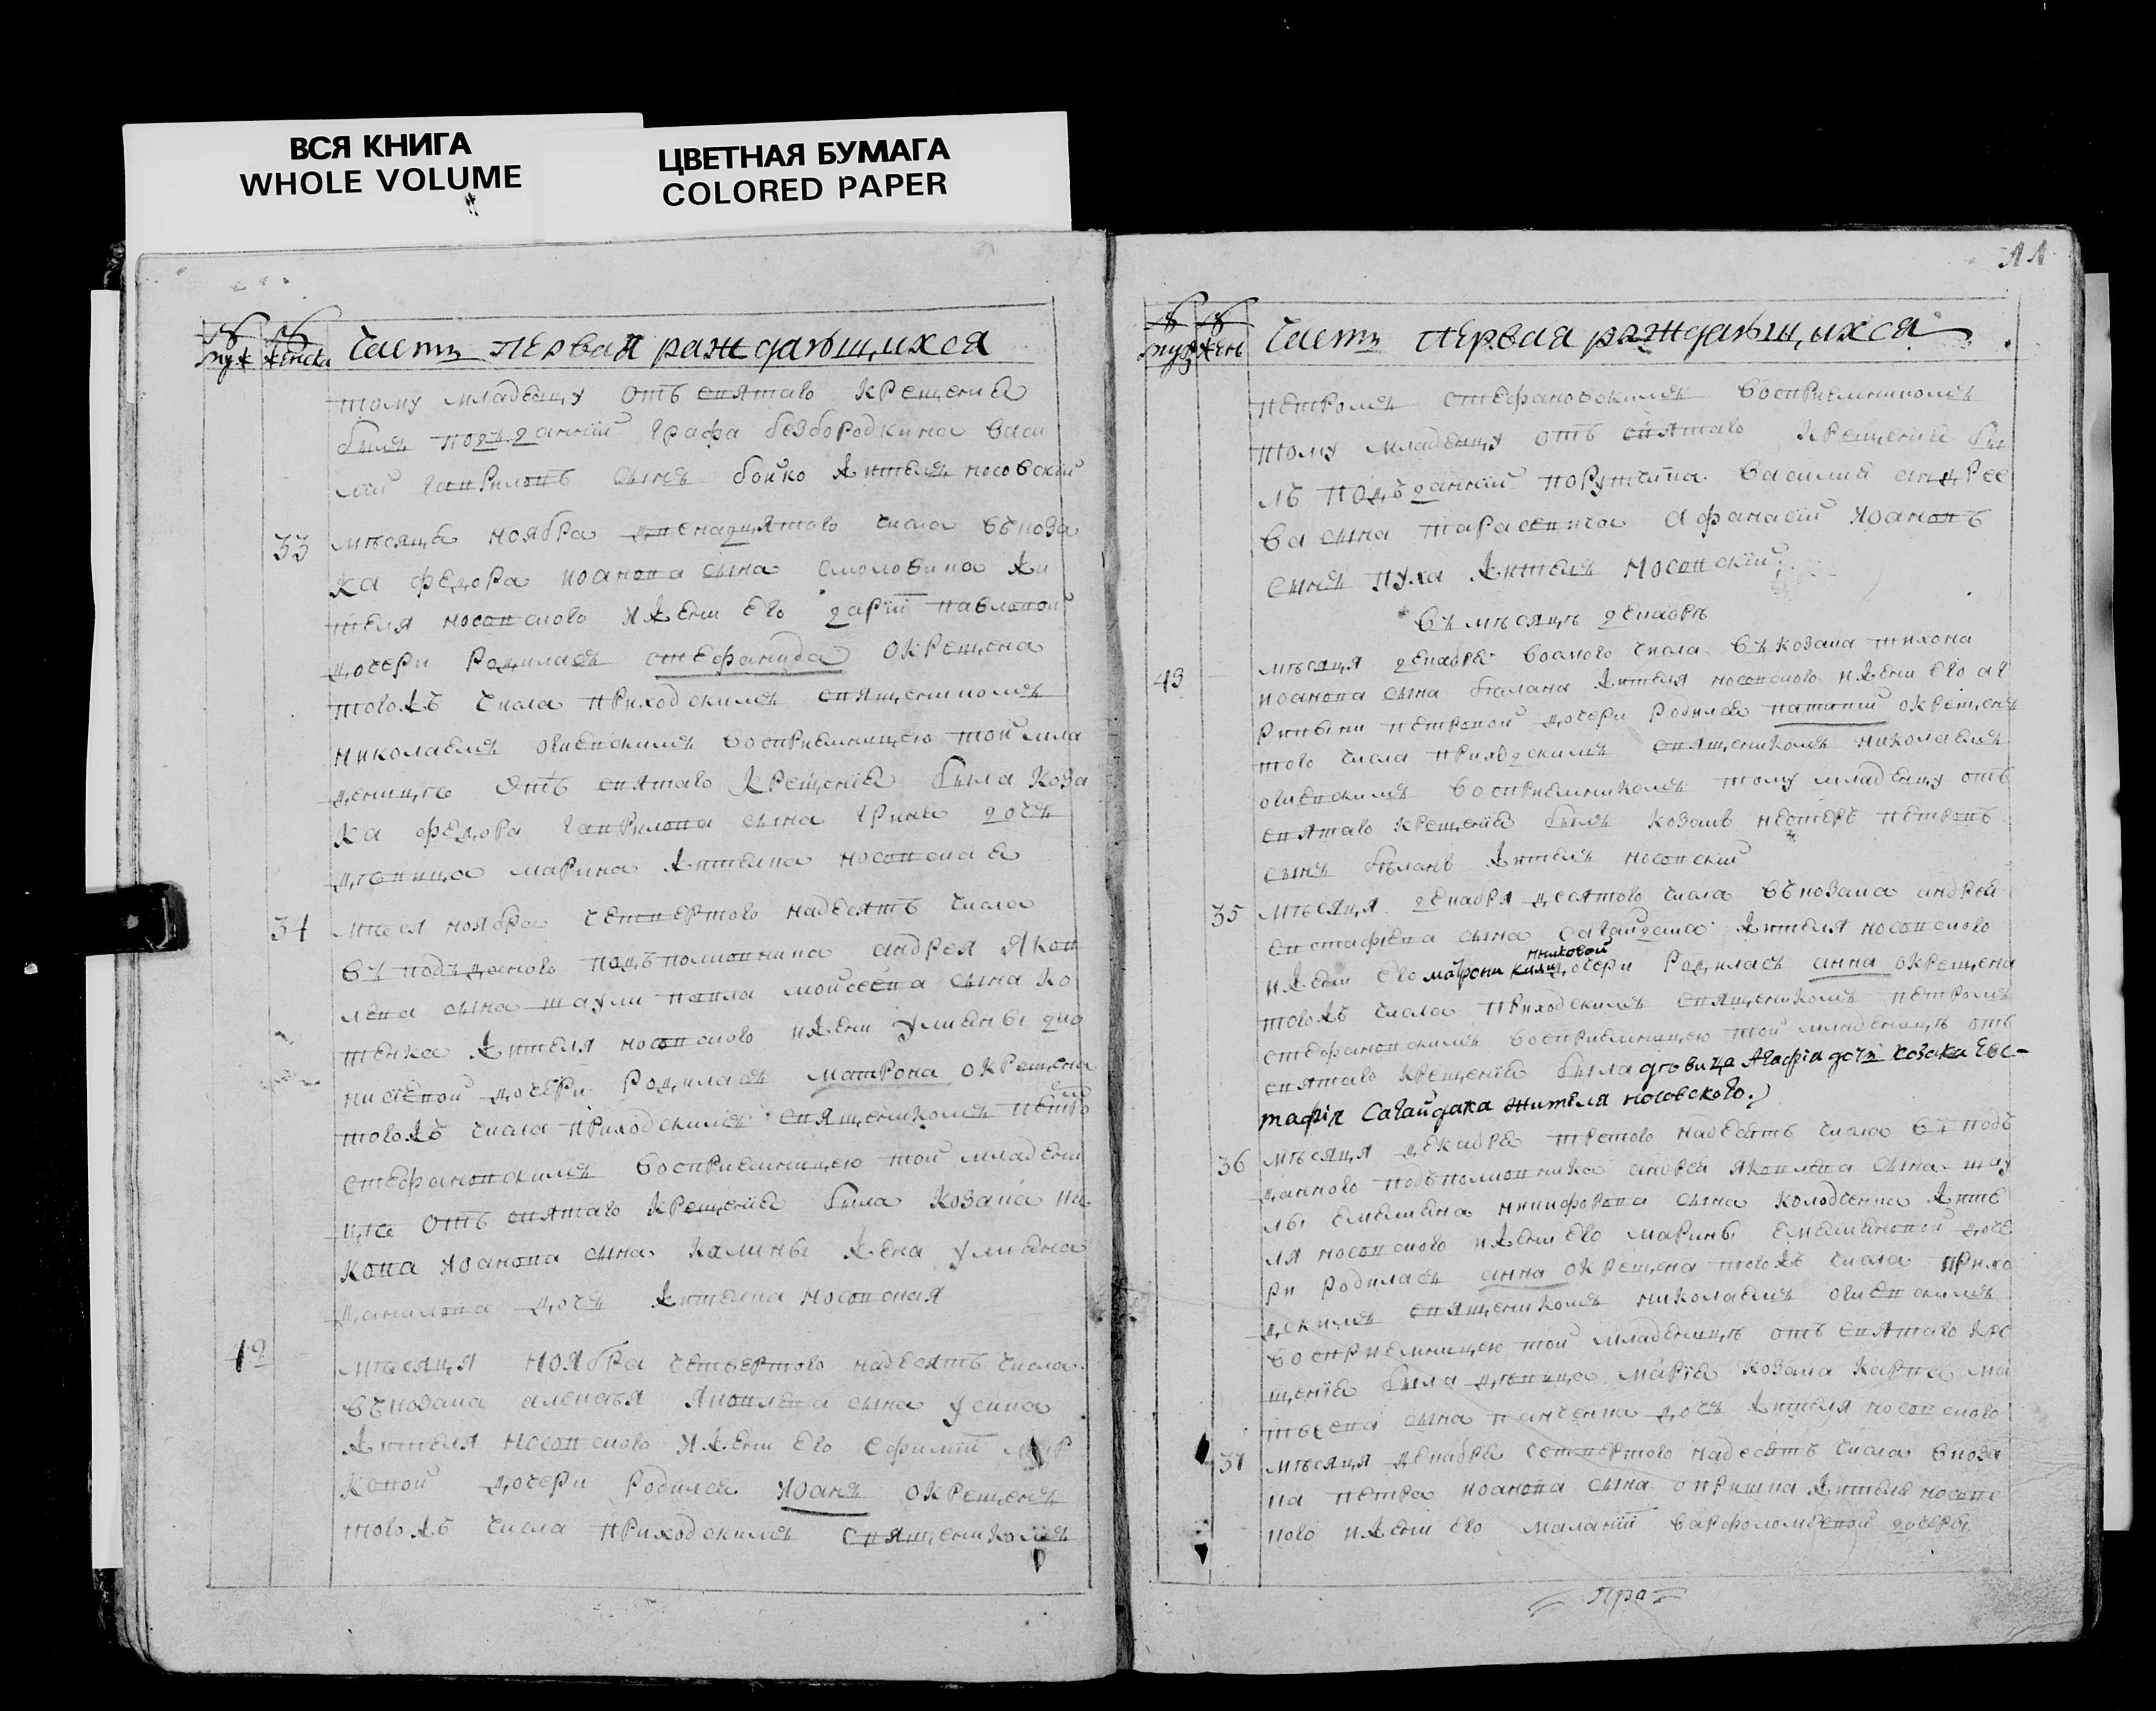 ВСЯ КНИГА
WHOLE VOLUME
ЦВЕТНАЯ БУМАГА
COLORED PAPER
муж женск Часть первая раждающихся
тому младенцу отъ святаго крещения
былъ подданный графа безбородкина васи
лий гавриловъ сынъ бойко житель носовский
33 мѣсяца ноября двенадцятого числа въ коза
ка федора иоанова сына смоловика жи
теля носовского и жени его дарий павловой
дочери родилась стефанида окрещена
того жъ числа приходскимъ священикомъ
николаемъ огиевскимъ восприемницею той мла
деницѣ отъ святаго крещения была коза
ка федора гаврилова сына гриня дочь
дѣвица марина жителка носовская
34 ноября четвертого надесять числа
въ подъданого подъполковника андрея яков
лева сына шаули павла мойсеева сына ко
тенка жителя носовского и жени улияны дио
нисиевой дочери родилась матрона окрещена
того жъ числа приходскимъ священикомъ петромъ
стефановскимъ восприемницею той младени
цѣ отъ святаго крещения была козака
кова иоанова сына калины жена улияна
данилова дочь жителка носовская
42 мѣсяця ноября четвертого надесять числа
въ козака яковлева сына усика
жителя носовского и жени его ефимий мар
ковой дочери родился иоанъ окрещенъ
того жъ числа приходскимъ священикомъ
муж жен Часть первая раждающихся
петромъ стефановскимъ восприемникомъ
тому младенцу отъ святаго крещения бы
лъ подъданний поручика василия андрее
ва сына тарасевича афанасий иоановъ
сынъ пуха житель носовский
въ мѣсяцѣ декабрѣ
43 мѣсяця декабря восмого числа въ козака тихона
иоанова сына билана жителя носовского и жени его
петровой дочери родился окрещенъ
того числа приходскимъ священикомъ николаемъ
огиевскимъ восприемникомъ тому младенцу отъ
святаго крещения былъ козакъ нестеръ петровъ
сынъ биланъ житель носовский
35 мѣсяця декабря десятого числа въ козака андрея
евстафиева сына сагайдака жителя носовского
никовой
и жени его матрони дочери родилась анна окрещена
того жъ числа приходскимъ священикомъ петромъ
стефановскимъ восприемницею той младеницѣ отъ
святаго крещения была дѣвица Агафія дочь козака Евс-
тафія Сагайдака жителя носовского.
36 мѣсяця декабря третого надесять числа въ подъ
данного подъполковника андрея яковлева сына шау
лы емелияна никифорова сына колодченка жите
ля носовского и жени его марины емелияновой доче
ри родилась анна окрещена того жъ числа прихо
дскимъ священикомъ николаемъ огиевскимъ
восприемницею той младеницѣ отъ святаго кре
щения была дѣвица мария козака карпа ма
твеева сына панченка дочь жителя носовского
37 мѣсяця декабря четвертого надесять числа в коза
ка петра иоанова сына опришка жителя носовс
кого и жени его маланий варфоломеевой дочери